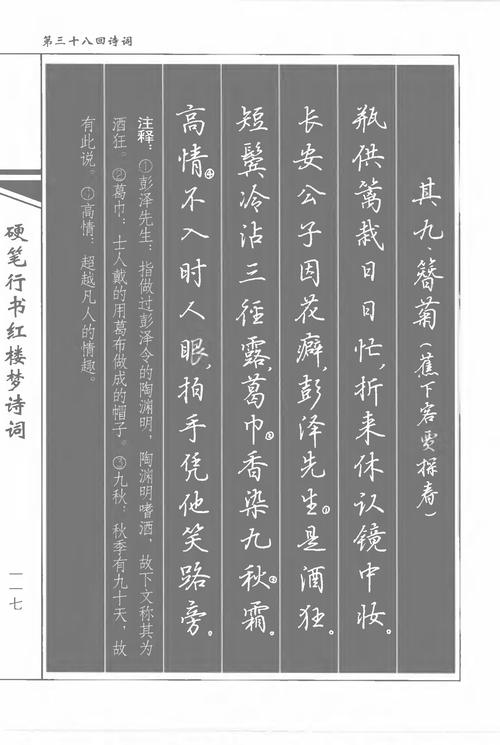 第三十八回诗词
其九·簪菊（蕉下客贾探春）
瓶供篱栽日日忙，折来休认镜中妆。
长安公子因花癖，彭泽先生①是酒狂。
短鬓冷沾三径露，葛巾②香染九秋③霜。
高情④不入时人眼，拍手凭他笑路旁。
注释：①彭泽先生：指做过彭泽令的陶渊明，陶渊明嗜酒，故下文称其为
酒狂。②葛巾：士人戴的用葛布做成的帽子。③九秋：秋季有九十天，故
有此说。④高情：超越凡人的情趣。
硬笔行书红楼梦诗词
一一七